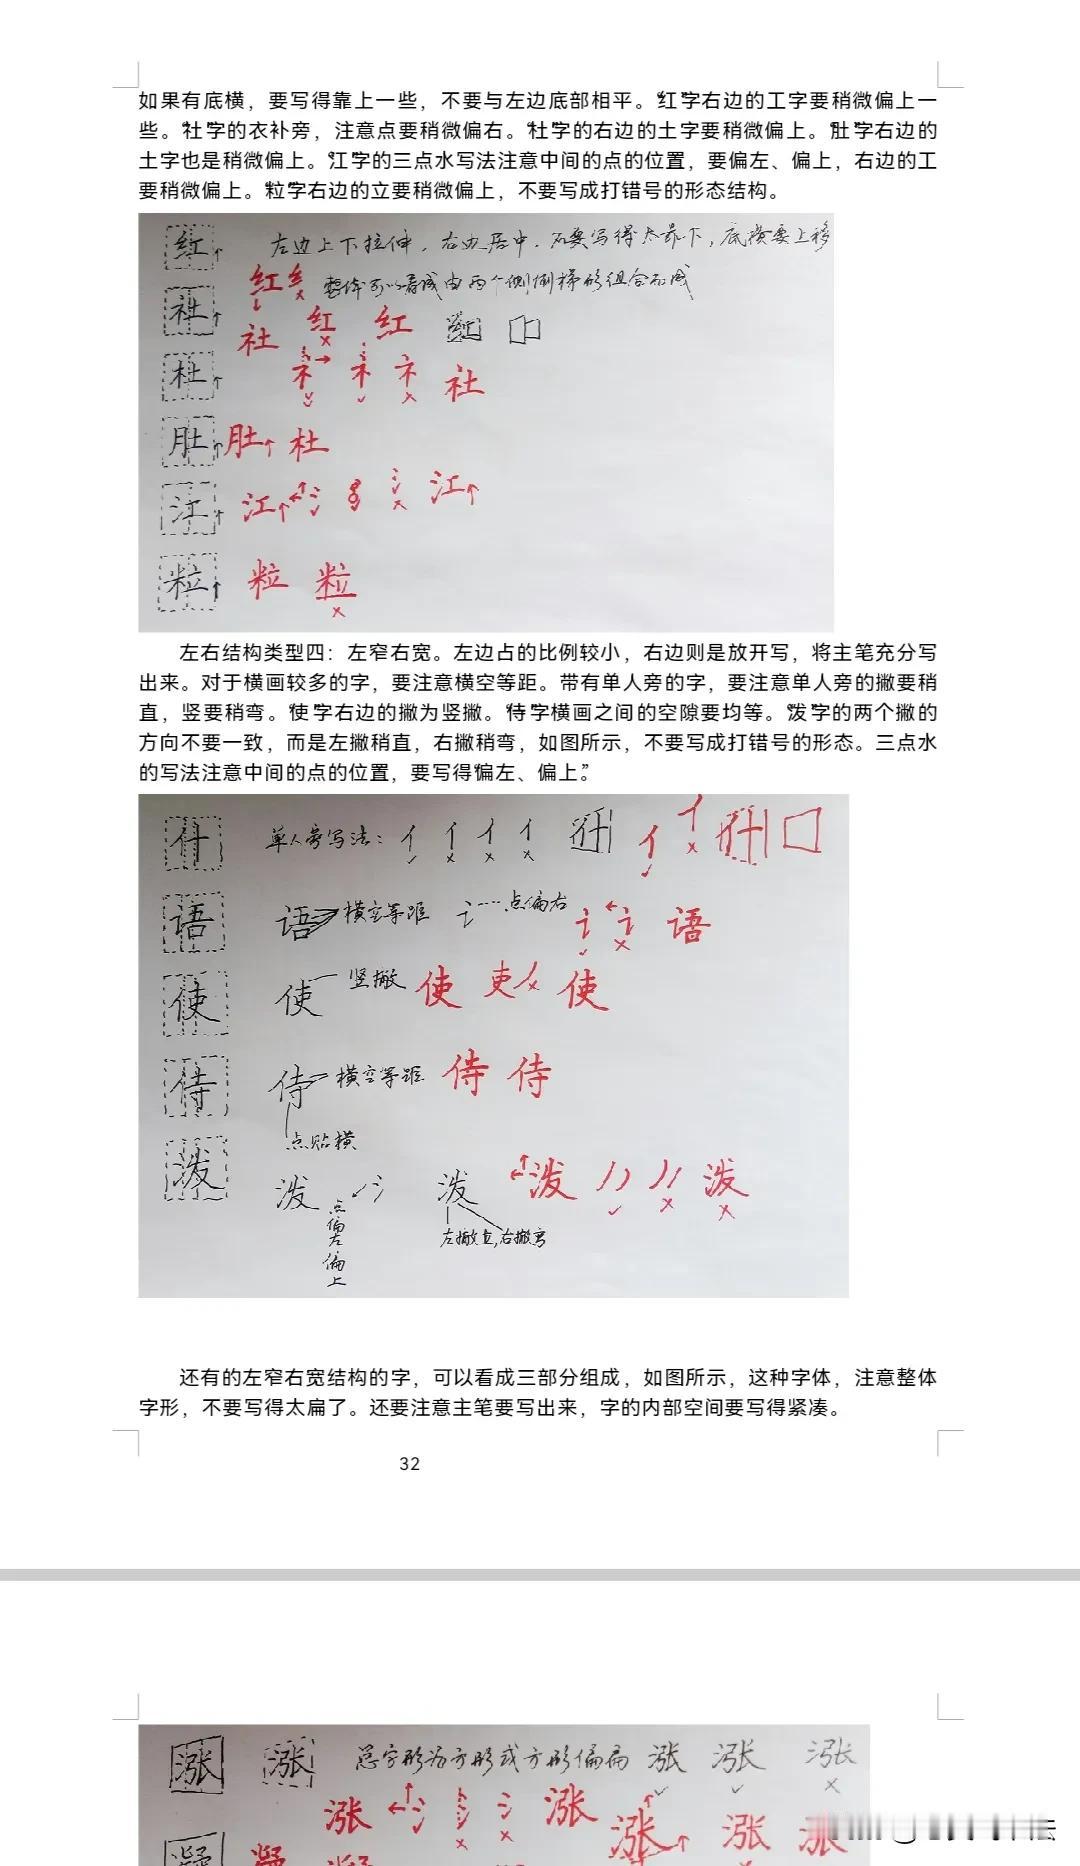 如果有底横，要写得靠上一些，不要与左边底部相平。“红”字右边的工字要稍微偏上一
些。“社”字的衣补旁，注意点要稍微偏右。“杜”字的右边的土字要稍微偏上。“肚”字右边的
土字也是稍微偏上。“江”字的三点水写法注意中间的点的位置，要偏左、偏上，右边的工
要稍微偏上。“粒”字右边的立要稍微偏上，不要写成打错号的形态结构。
红 左边上下拉伸，右边居中，不要写得太靠下，底横要上移
红 纟 整体可以看成由两个侧倒梯形组合而成
社 社 红 红
杜 礻 礻 礻 社
肚 肚 杜
江 江 氵 氵 江
粒 粒 粒
左右结构类型四：左窄右宽。左边占的比例较小，右边则是放开写，将主笔充分写
出来。对于横画较多的字，要注意横空等距。带有单人旁的字，要注意单人旁的撇要稍
直，竖要稍弯。“使”字右边的撇为竖撇。“侍”字横画之间的空隙要均等。“泼”字的两个撇的
方向不要一致，而是左撇稍直，右撇稍弯，如图所示，不要写成打错号的形态。三点水
的写法注意中间的点的位置，要写得“偏左、偏上”。
什 单人旁写法：亻 亻 亻 亻 什 亻 亻 什
语 语 横空等距 讠 点偏右 讠 讠 语
使 使 竖撇 使 吏 使
侍 侍 横空等距 侍 侍
点贴横
泼 泼 点偏左偏上 氵 泼 泼 泼
左撇直，右撇弯
还有的左窄右宽结构的字，可以看成三部分组成，如图所示，这种字体，注意整体
字形，不要写得太扁了。还要注意主笔要写出来，字的内部空间要写得紧凑。
32
涨 涨 总字形为方形或方形偏扁 涨 涨 涨
涨 氵 氵 氵 涨 涨 涨 涨